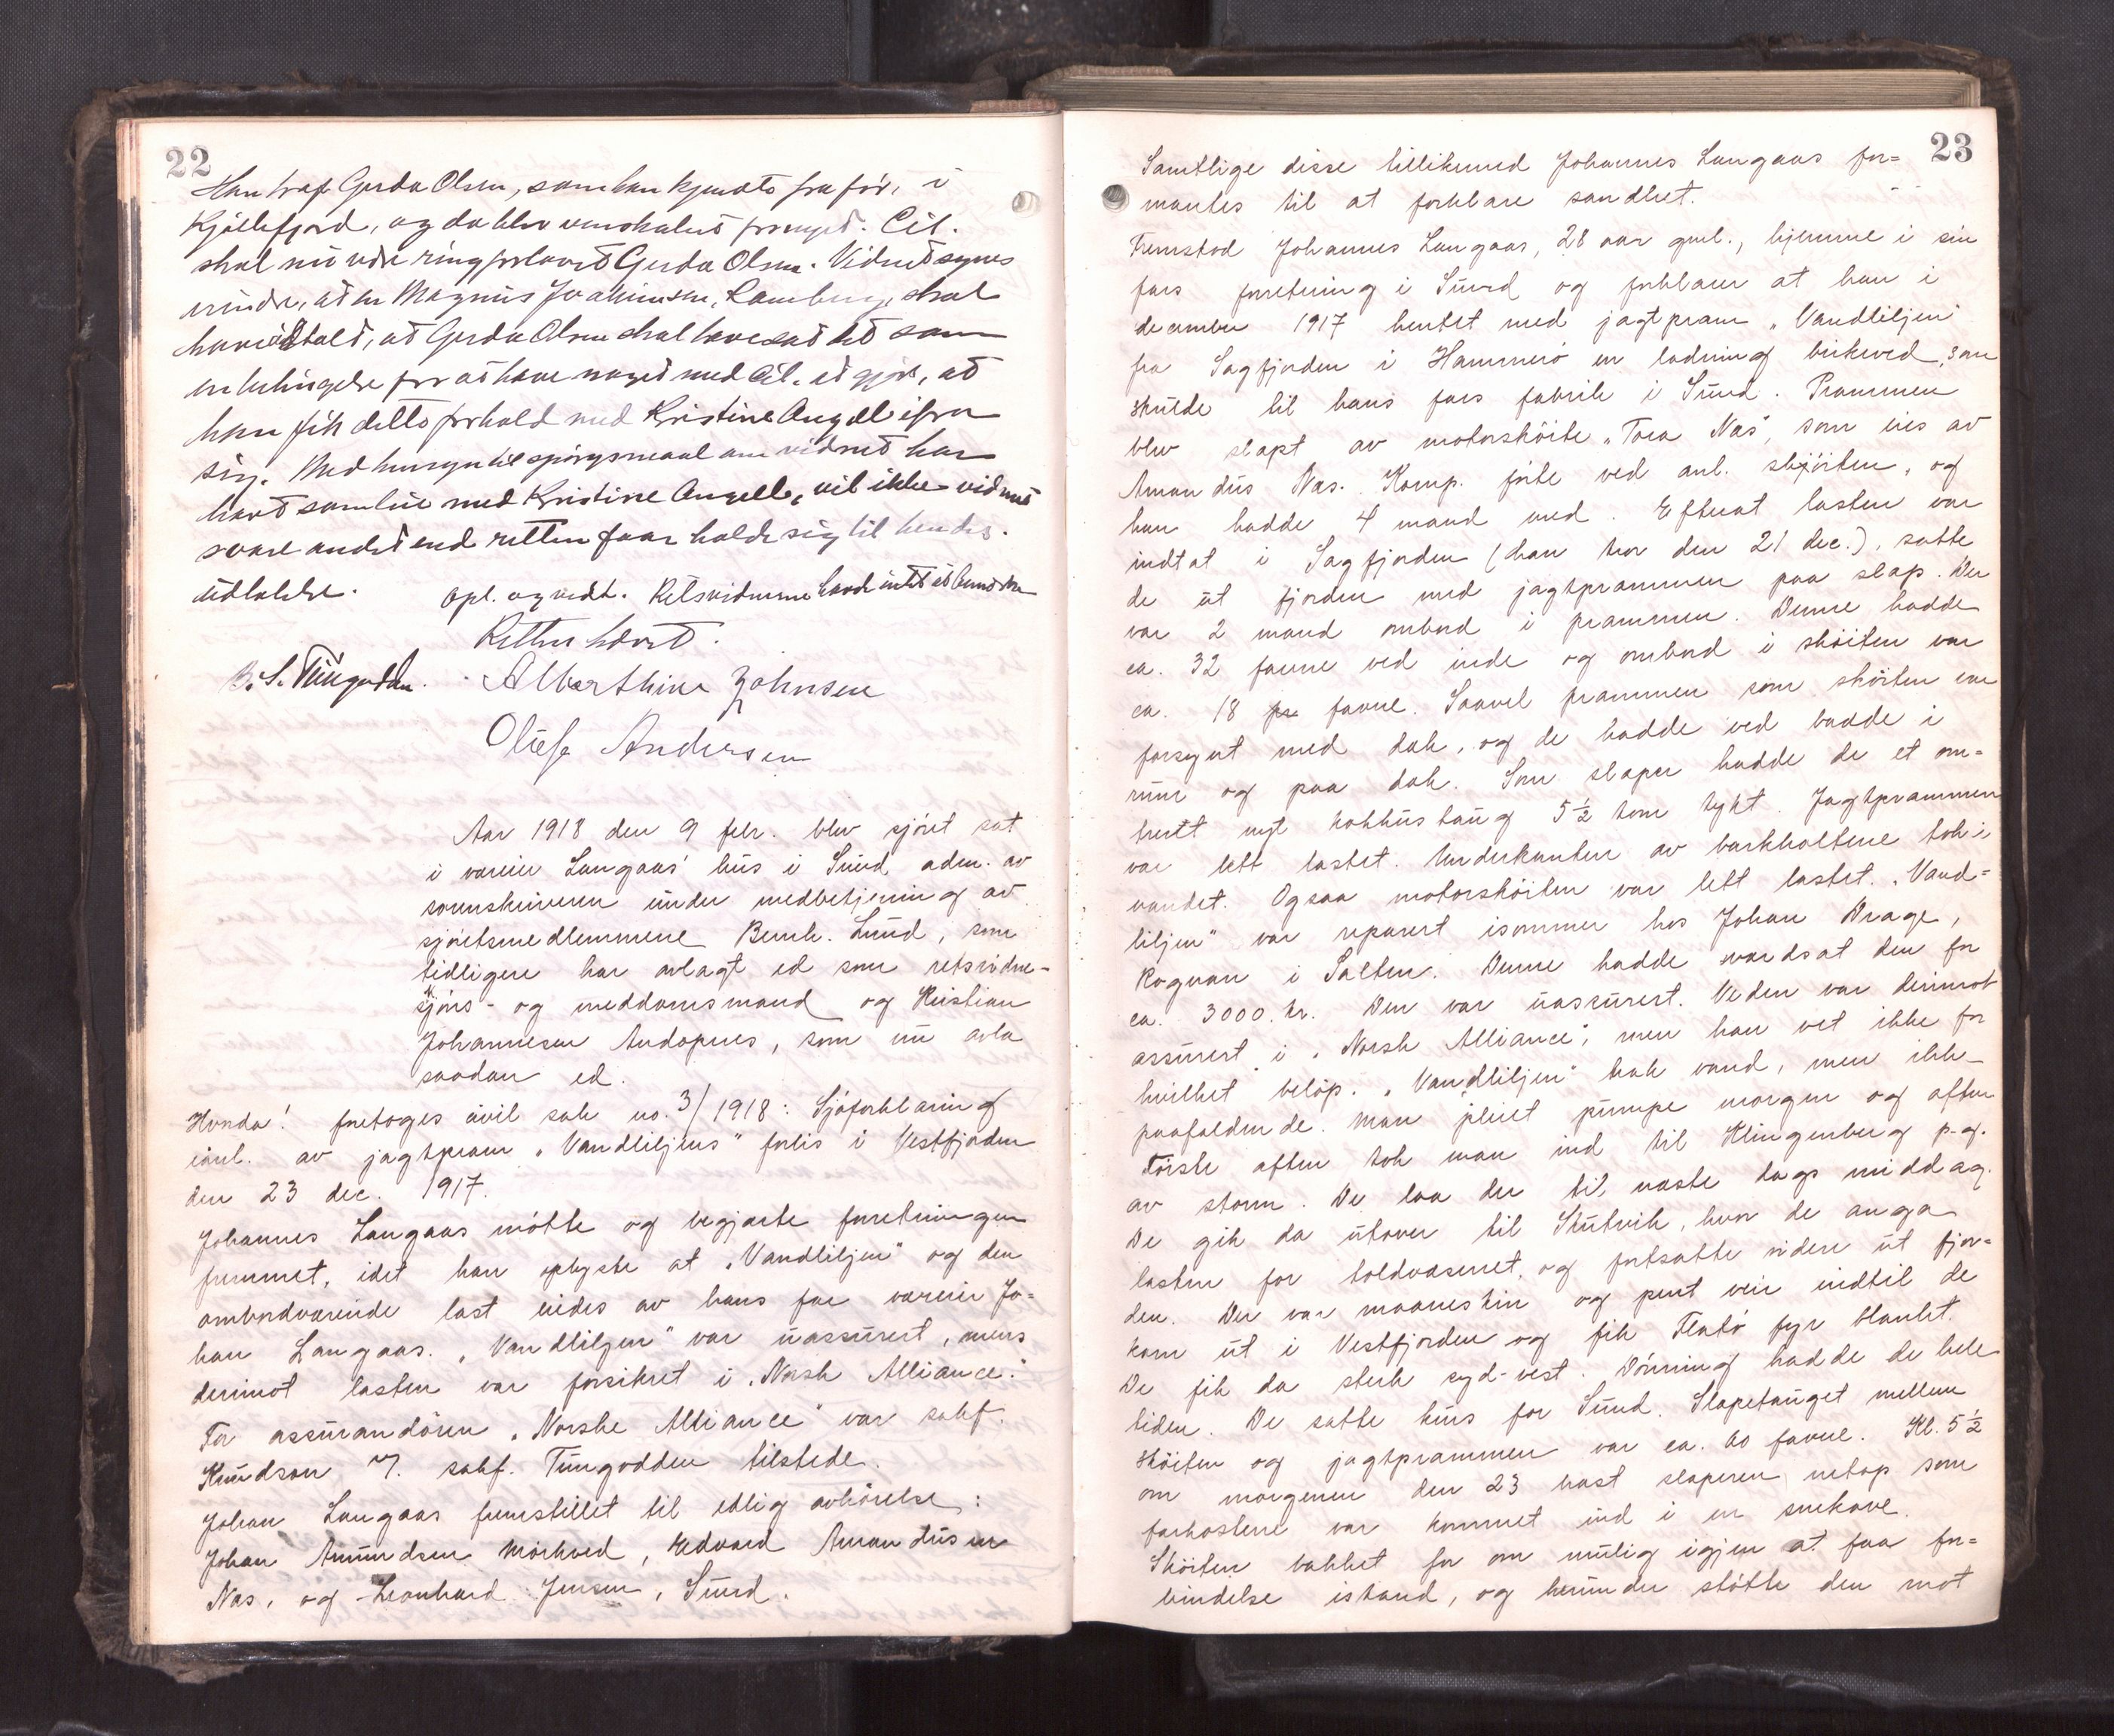 22
Han traf Gerda Olsen, som han kjendte fra før, i
Kjøllefjord, og da blev venskabet fornyet. Cit.
skal nu være ringforlovet Gerda Olsen. Vidnet synes
erindre, at en Magnus Joakimsen, Ramberg, skal
have fortalt, at Gerda Olsen skal have sat det som
en betingelse for at have noget med Cit. at gjøre, at
han fik dette forhold med Kristine Angell ifra
sig. Med hensyn til spørgsmaal om vidnet har
havt samleie med Kristine Angell, vil ikke vidnet
svare andet end retten faar holde sig til hendes
udtalelse.
Opl. og vedt. Retsvidnerne havde intet at bemerke
Retten hævet.
B. S. Tungodden. Alberthine Johnsen
Oluf Andersen
Aar 1918 den 9 febr. blev sjøret sat
i væreier Langaas' hus i Sund adm. av
sorenskriveren under medbetjening av
sjøretsmedlemmene Bernh. Lund, som
tidligere har avlagt ed som retsvidne-
sjørs- og meddomsmand og Kristian
Johannesen Andopnes, som nu avla
saadan ed.
Hvorda! foretoges civil sak no. 3/1918: Sjøforklaring
i anl. av jagtpram „Vandliljens" forlis i Vestfjorden
den 23 dec. 1917.
Johannes Langaas møtte og begjærte forretningen
fremmet, idet han oplyste at „Vandliljen" og den
ombordværende last eiedes av hans far væreier Jo=
han Langaas. „Vandliljen" var uassurert, mens
derimot lasten var forsikret i „Norsk Alliance."
For assurandøren „Norske Alliance" var sakf.
Knudson v. sakf. Tungodden tilstede.
Johan Langaas fremstillet til edlig avhørelse:
Johan Amundsen Mørkved, Edvard Amandusen
Næs, og Leonhard Jensen, Sund.
23
Samtlige disse tillikemed Johannes Langaas for=
mantes til at forklare sandhet.
Fremstod Johannes Langaas, 28 aar gml., hjemme i sin
fars forretning i Sund og forklarer at han i
december 1917 hentet med jagtpram „Vandliljen"
fra Sagfjorden i Hammerø en ladning birkeved, som
skulde til hans fars fabrik i Sund. Prammen
blev slæpt av motorskøite „Tora Næs", som eies av
Amandus Næs. Komp. førte ved anl. skjøiten, og
han hadde 4 mand med. Efterat lasten var
indtat i Sagfjorden (han tror den 21 dec.), satte
de ut fjorden med jagtprammen paa slæp. Der
var 2 mand ombord i prammen. Denne hadde
ca. 32 favne ved inde og ombord i skøiten var
ca. 18 favne. Saavel prammen som skøiten var
forsynt med dæk, og de hadde ved baade i
rum og paa dæk. Som slæper hadde de et om=
trent nyt kokkustaug 5½ tom tykt. Jagtprammen
var lett lastet. Underkanten av barkholtene tok i
vandet. Ogsaa motorskøiten var lett lastet. „Vand=
liljen" var reparert isommer hos Johan Drage,
Rognan i Salten. Denne hadde værdsat den for
ca. 3000. kr. Den var uassurert. Veden var derimot
assurert i „Norsk Alliance", men han vet ikke for
hvilket beløp. „Vandliljen" trak vand, men ikke
paafaldende. Man pleiet pumpe morgen og aften
Første aften tok man ind til Klingenberg p.g.
av storm. De laa der til næste dags middag.
De gik da utover til Skutvik, hvor de anga
lasten for toldvæsenet, og fortsatte videre ut fjor=
den. Der var maaneskin og pent veir indtil de
kom ut i Vestfjorden og fik Flatø fyr blanket.
De fik da sterk syd-vest. Dønning hadde de hele
tiden. De satte kurs for Sund. Slæpetauget mellem
skøiten og jagtprammen var ca. 60 favne. Kl. 5½
om morgenen den 23 brast slæperen netop som
farkostene var kommet ind i en snekave.
Skøiten bakket for om mulig igjen at faa for=
bindelse istand, og herunder støtte den mot